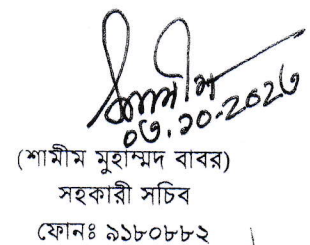 শামীম
০৩.১০-২০১৩
(শামীম মুহাম্মদ বাবর)
সহকারী সচিব
ফোনঃ ৯১৮০৮৮২